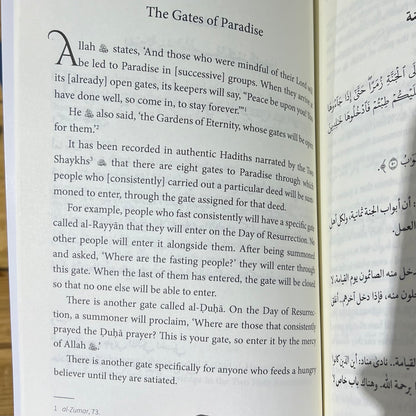 The Gates of Paradise
Allah ﷻ states, 'And those who were mindful of their Lord will
be led to Paradise in [successive] groups. When they arrive at
its [already] open gates, its keepers will say, "Peace be upon you! You
have done well, so come in, to stay forever."'¹
He ﷻ also said, 'the Gardens of Eternity, whose gates will be open
for them.'²
It has been recorded in authentic Hadiths narrated by the Two
Shaykhs³ that there are eight gates to Paradise through which
people who [consistently] carried out a particular deed will be sum-
moned to enter, through the gate assigned for that deed.
For example, people who fast consistently will have a specific gate
called al-Rayyān that they will enter on the Day of Resurrection. No
other people will enter it alongside them. After being summoned
and asked, 'Where are the fasting people?' they will enter through
this gate. When the last of them has entered, the gate will be closed
so that no one else will be able to enter.
There is another gate called al-Ḍuḥā. On the Day of Resurrec-
tion, a summoner will proclaim, 'Where are those that consistently
prayed the Ḍuḥā prayer? This is your gate, so enter it by the mercy
of Allah ﷻ.'
There is another gate specifically for anyone who feeds a hungry
believer until they are satiated.
1 al-Zumar, 73.
لَى الْجَنَّةِ زُمَرًا حَتَّى إِذَا جَاءُوهَا
عَلَيْكُمْ طِبْتُمْ فَادْخُلُوهَا خَالِدِينَ
أن أبواب الجنة ثمانية، ولكل أهل
العمل.
دخل منه الصائمون يوم القيامة لا
خلون منه، فإذا دخل آخرهم، أغلق
القيامة.. نادى مناد: أين الذين كانوا
برحمة الله. وهناك باب خاص لا